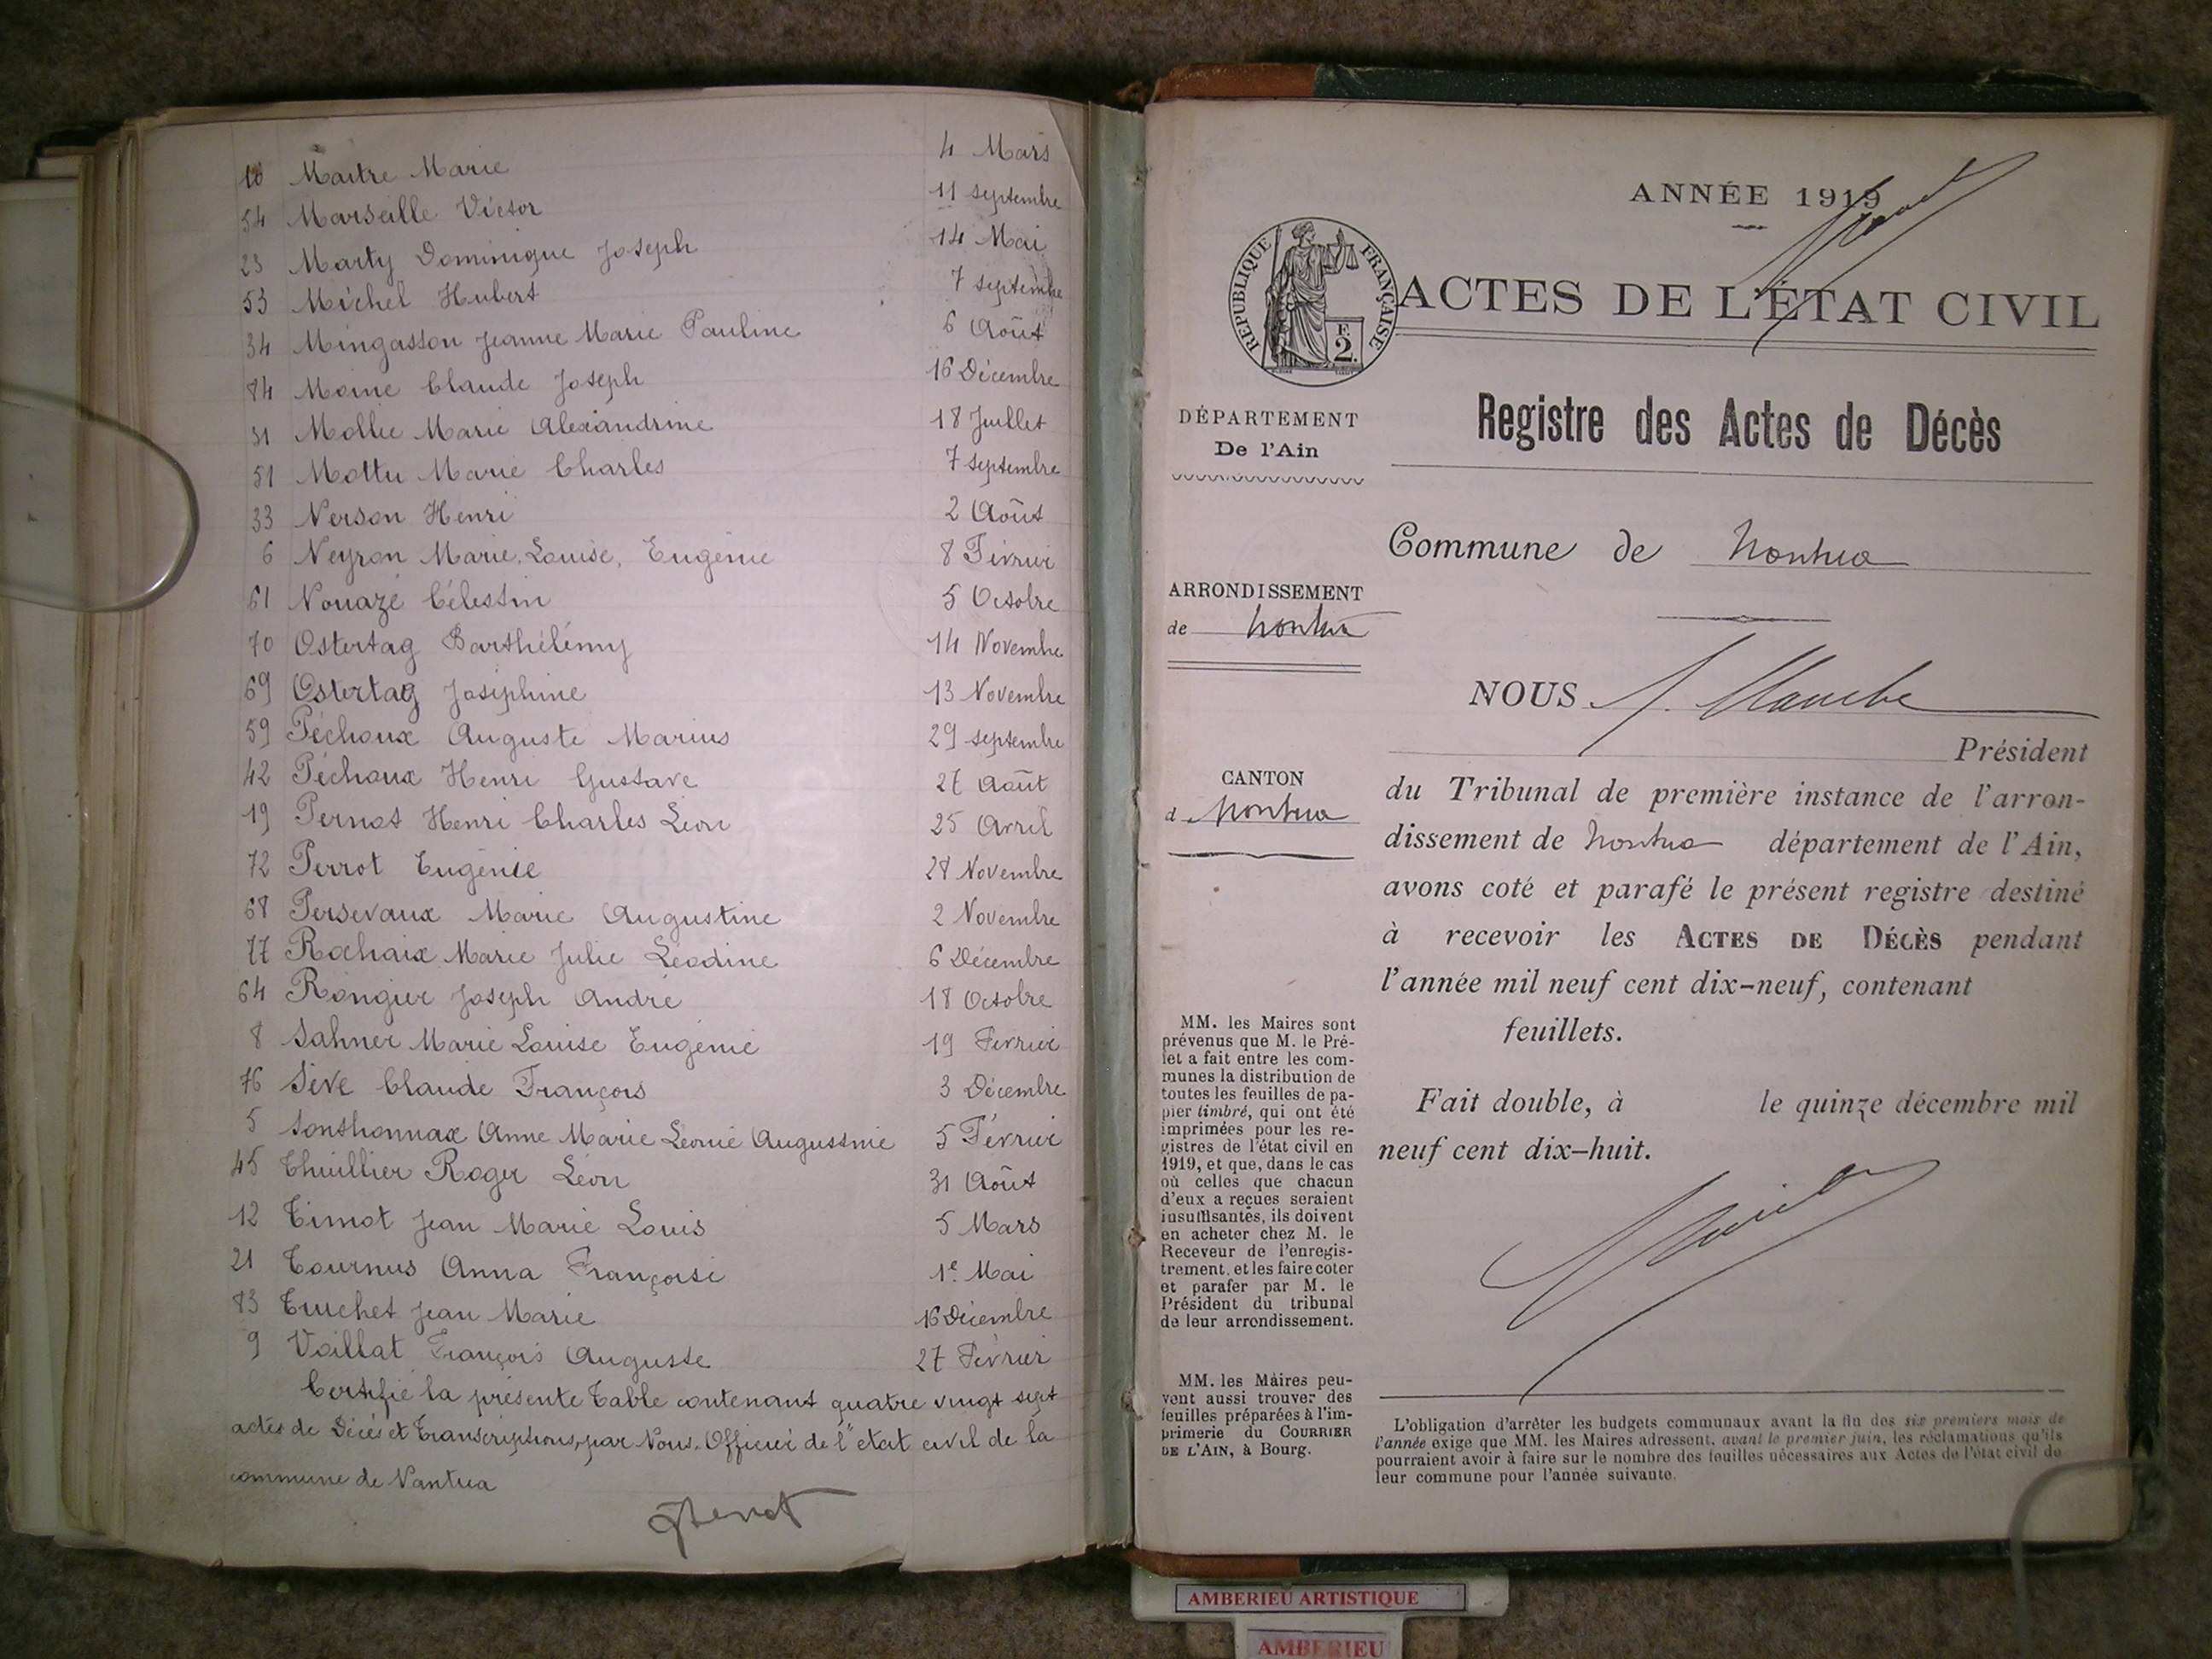 10 Maitre Marie 4 Mars
54 Marseille Victor 11 septembre
23 Marty Dominique Joseph 14 Mai
53 Michel Hubert 7 septembre
34 Mingasson Jeanne Marie Pauline 6 Août
84 Moine Claude Joseph 16 Décembre
31 Mollie Marie Alexandrine 18 Juillet
51 Mottu Marie Charles 7 septembre
33 Nerson Henri 2 Août
6 Neyron Marie, Louise, Eugénie 8 Février
61 Nouazé Célestin 5 Octobre
70 Ostertag Barthélémy 14 Novembre
69 Ostertag Joséphine 13 Novembre
59 Péchoux Auguste Marius 29 septembre
42 Péchoux Henri Gustave 27 Août
19 Pernot Henri Charles Léon 25 Avril
72 Perrot Eugénie 28 Novembre
68 Persevaux Marie Augustine 2 Novembre
77 Rochaix Marie Julie Léodine 6 Décembre
64 Rongier Joseph André 18 Octobre
8 Sahner Marie Louise Eugénie 19 Février
76 Sève Claude François 3 Décembre
5 Sonthonnax Anne Marie Léonie Augustine 5 Février
45 Thuillier Roger Léon 31 Août
12 Timot Jean Marie Louis 5 Mars
21 Tournus Anna Françoise 1e Mai
83 Truchet Jean Marie 16 Décembre
9 Vaillat François Auguste 27 Février
Certifié la présente Table contenant quatre vingt sept
actes de Décès et Transcriptions, par Nous, Officier de l'état civil de la
commune de Nantua
ANNÉE 1919
RÉPUBLIQUE FRANÇAISE
E.
2.
ACTES DE L'ÉTAT CIVIL
DÉPARTEMENT
De l'Ain
Registre des Actes de Décès
Commune de Nantua
ARRONDISSEMENT
de Nantua
NOUS
Président
CANTON
d Nantua
du Tribunal de première instance de l'arron-
dissement de Nantua département de l'Ain,
avons coté et parafé le présent registre destiné
à recevoir les ACTES DE DÉCÈS pendant
l'année mil neuf cent dix-neuf, contenant
feuillets.
Fait double, à le quinze décembre mil
neuf cent dix-huit.
MM. les Maires sont
prévenus que M. le Pré-
fet a fait entre les com-
munes la distribution de
toutes les feuilles de pa-
pier timbré, qui ont été
imprimées pour les re-
gistres de l'état civil en
1919, et que, dans le cas
où celles que chacun
d'eux a reçues seraient
insuffisantes, ils doivent
en acheter chez M. le
Receveur de l'enregis-
trement, et les faire coter
et parafer par M. le
Président du tribunal
de leur arrondissement.
MM. les Maires peu-
vent aussi trouver des
feuilles préparées à l'im-
primerie du COURRIER
DE L'AIN, à Bourg.
L'obligation d'arrêter les budgets communaux avant la fin des six premiers mois de
l'année exige que MM. les Maires adressent, avant le premier juin, les réclamations qu'ils
pourraient avoir à faire sur le nombre des feuilles nécessaires aux Actes de l'état civil de
leur commune pour l'année suivante.
AMBERIEU ARTISTIQUE
AMBERIEU